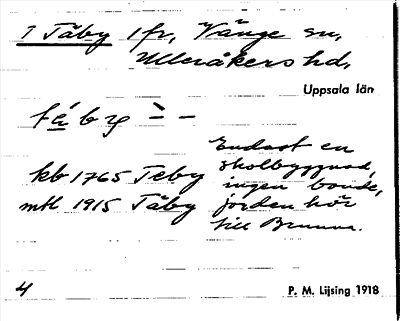 1 Täby 1 fr, Vänge sn,
Ulleråkers hd,
Uppsala län
tä́by
Endast en
skolbyggnad,
kb 1765 Teby
ingen bonde,
mtl 1915 Täby
jorden hör
till Brunna.
4
P. M. Lijsing 1918